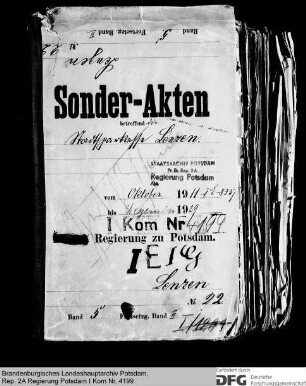 Band 5 Fortsetzg. Band II
Lenzen
Sonder-Akten
betreffend die
Stadtsparkasse Lenzen.
STAATSARCHIV POTSDAM
Pr. Br. Rep. 2A
Regierung Potsdam
Abt.
vom Oktober 1911
bis Dezember 1929
I Kom Nr 4199
Regierung zu Potsdam.
Lenzen
№ 22
Band 5 Fortsetzg. Band II
Brandenburgisches Landeshauptarchiv Potsdam,
Rep. 2A Regierung Potsdam I Kom Nr. 4199
Gefördert durch
DFG Deutsche
Forschungsgemeinschaft